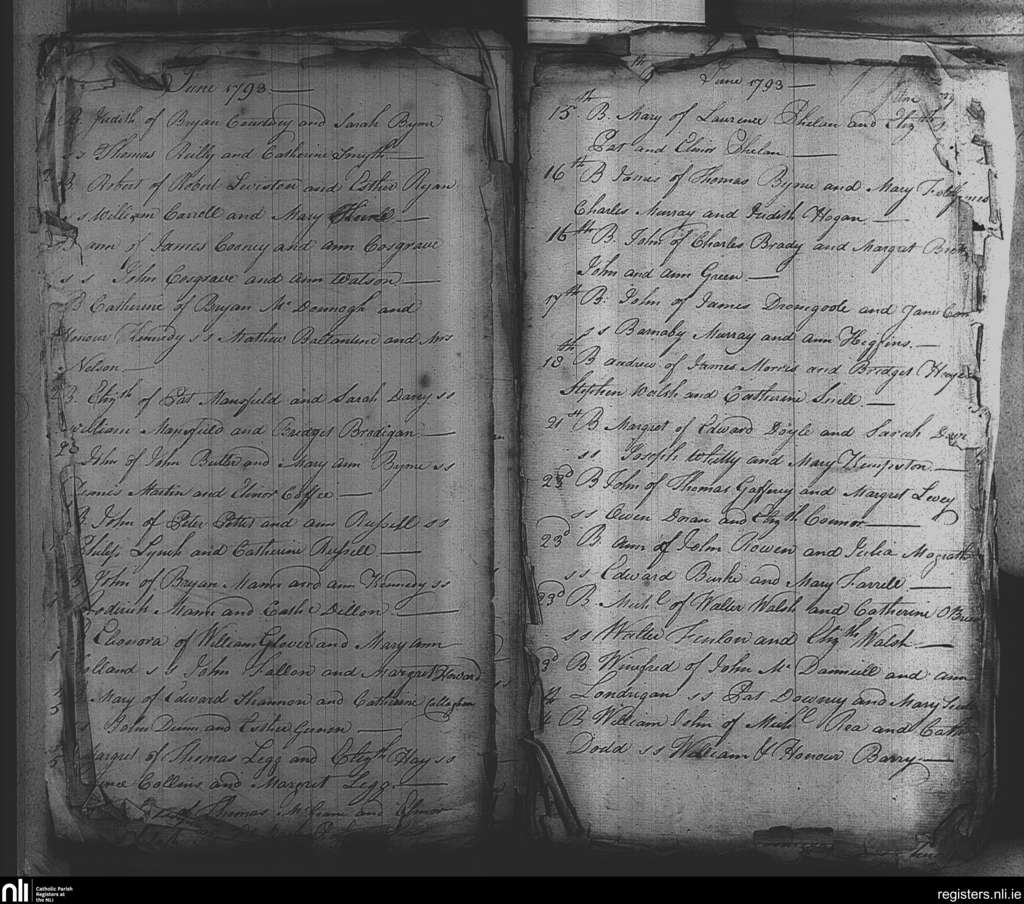 June 1793
B. Judith of Bryan Courtney and Sarah Byrne
ss Thomas Reilly and Catherine Smyth
B. Robert of Robert Leviston and Esther Ryan
ss William Carroll and Mary
ann of James Cooney and ann Cosgrave
ss John Cosgrave and Ann Watson
B Catherine of Bryan Mc Donnogh and
Honour Kennedy ss Mathew Ballantine and Mrs
Nelson
B. Elizth of Pat Mansfield and Sarah Darcy ss
William Mansfield and Bridget Brodigan
John of John Butler and Mary Ann Byrne ss
James Martin and Elinor Coffee
B. John of Peter Potter and ann Russell ss
Philip Lynch and Catherine Russell
B John of Bryan Mann and ann Kennedy ss
Roderick Mann and Cathe Dillon
Eleonora of William Glover and Mary ann
Holland ss John Fallon and Margret Howard
Mary of Edward Shannon and Catherine Callaghan
John Dunn and Esther
Margret of Thomas Legg and Elizth Hay ss
Collins and Margret Legg
of Thomas and Elinor
June 1793
15th B. Mary of Laurence Phelan and Elizth
Pat and Elinor Phelan
16th B James of Thomas Byrne and Mary
Charles Murray and Judith Hogan
16th B. John of Charles Brady and Margret
John and Ann Green
17th B. John of James Dromgoole and Jane
ss Barnaby Murray and Ann Higgins
18th B andrew of James Morris and Bridget
Stephen Walsh and Catherine Snell
21st B Margret of Edward Doyle and Sarah
ss Joseph Whitty and Mary Kempston
23d B John of Thomas Gaffney and Margret Levey
ss Owen Doran and Elizth Connor
23d B. Ann of John Rowen and Julia Magrath
ss Edward Burke and Mary Farrell
23d B. Michl of Walter Walsh and Catherine O Brien
ss Walter Fenlon and Elizth Walsh
3d B. Winefred of John Mc Danniell and ann
Londrigan ss Pat Downey and Mary
B William John of Michl Rea and
Dodd ss William & Honour Barry
nli
Catholic Parish
Registers at
the NLI
registers.nli.ie